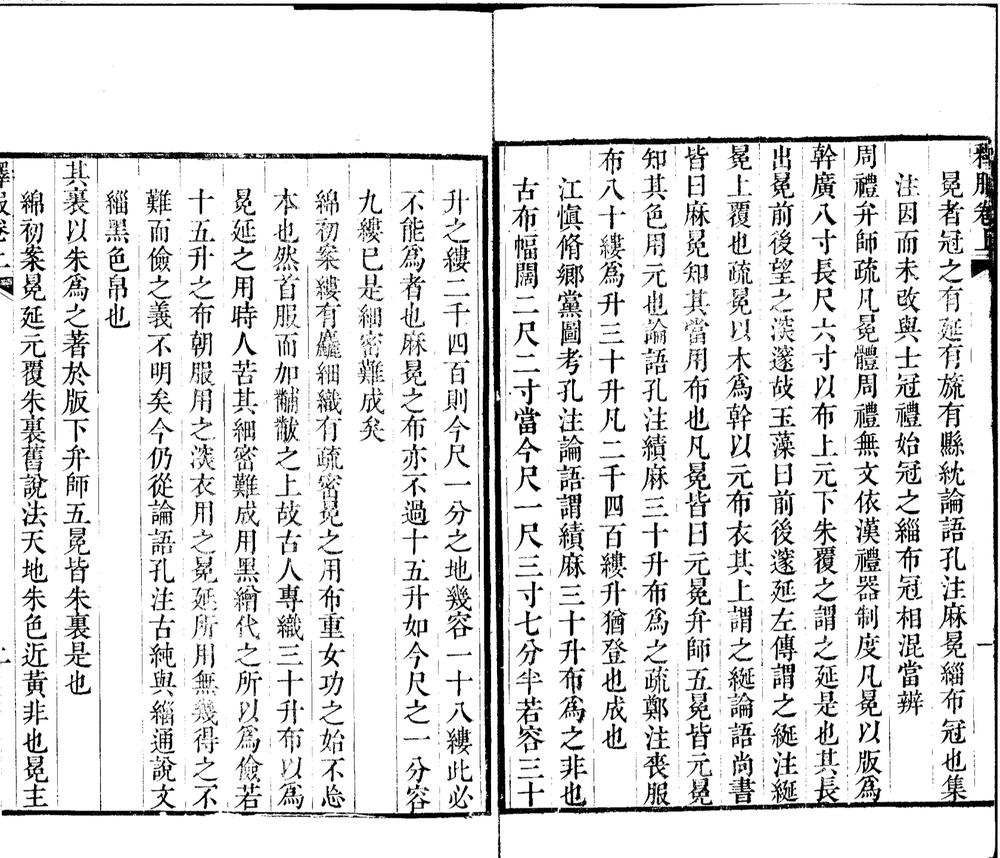 釋服卷上
一
冕者冠之有延有旒有縣紞論語孔注麻冕緇布冠也集
注因而未改與士冠禮始冠之緇布冠相混當辨
周禮弁師疏凡冕體周禮無文依漢禮器制度凡冕以版爲
幹廣八寸長尺六寸以布上元下朱覆之謂之延是也其長
出冕前後望之深邃故玉藻曰前後邃延左傳謂之綖注綖
冕上覆也疏冕以木爲幹以元布衣其上謂之綖論語尚書
皆曰麻冕知其當用布也凡冕皆曰元冕弁師五冕皆元冕
知其色用元也論語孔注績麻三十升布爲之疏鄭注喪服
布八十縷爲升三十升凡二千四百縷升猶登也成也
江愼脩鄉黨圖考孔注論語謂績麻三十升布爲之非也
古布幅闊二尺二寸當今尺一尺三寸七分半若容三十
升之縷二千四百則今尺一分之地幾容一十八縷此必
不能爲者也麻冕之布亦不過十五升如今尺之一分容
九縷已是細密難成矣
綿初案縷有麤細織有疏密冕之用布重女功之始不忘
本也然首服而加黼黻之上故古人專織三十升布以爲
冕延之用時人苦其細密難成用黑繒代之所以爲儉若
十五升之布朝服用之深衣用之冕延所用無幾得之不
難而儉之義不明矣今仍從論語孔注古純與緇通說文
緇黑色帛也
其裏以朱爲之著於版下弁師五冕皆朱裏是也
綿初案冕延元覆朱裏舊說法天地朱色近黃非也冕主